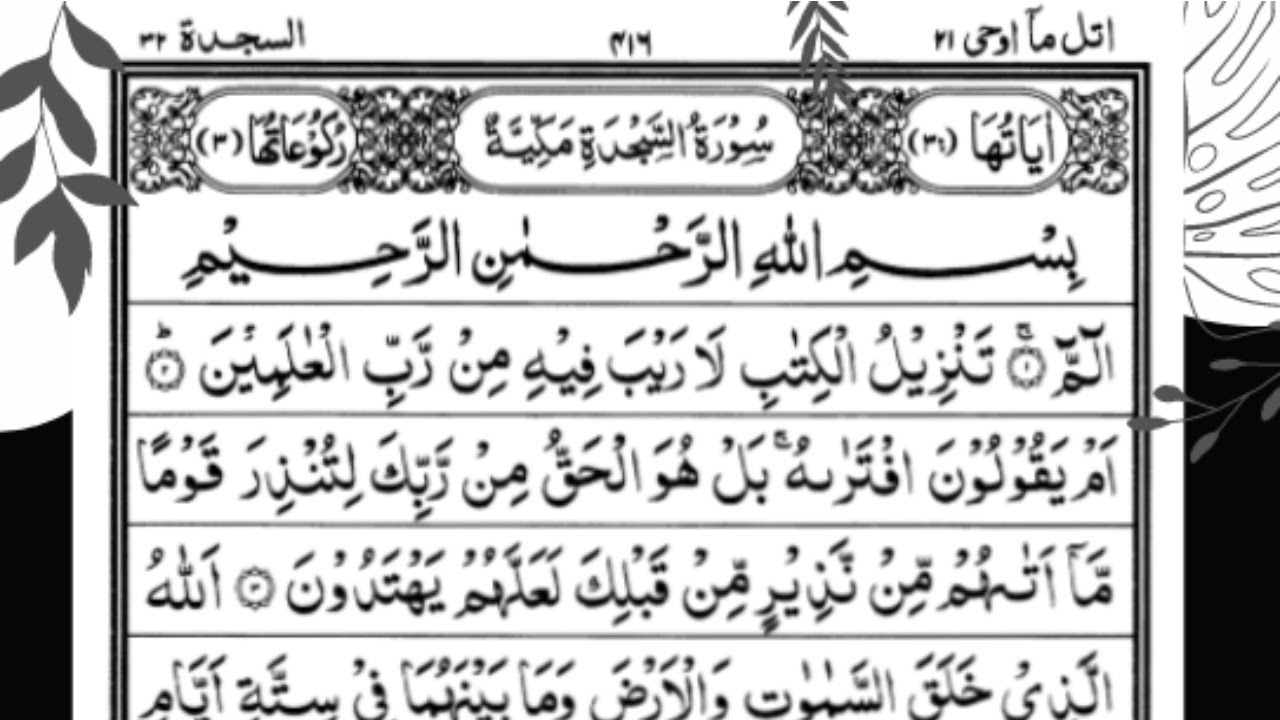 اتل مآ اوحی ۲۱ ۴۱۶ السجدة ۳۲
اٰیَاتُهَا (۳۰) سُوْرَةُ السَّجْدَةِ مَكِّيَّةٌ رُكُوْعَاتُهَا (۳)
بِسْمِ اللّٰهِ الرَّحْمٰنِ الرَّحِيْمِ
الٓمّٓ ۚ ۝۱ تَنْزِيْلُ الْكِتٰبِ لَا رَيْبَ فِيْهِ مِنْ رَّبِّ الْعٰلَمِيْنَ ؕ ۝۲
اَمْ يَقُوْلُوْنَ افْتَرٰىهُ ۚ بَلْ هُوَ الْحَقُّ مِنْ رَّبِّكَ لِتُنْذِرَ قَوْمًا
مَّاۤ اَتٰىهُمْ مِّنْ نَّذِيْرٍ مِّنْ قَبْلِكَ لَعَلَّهُمْ يَهْتَدُوْنَ ۝۳ اَللّٰهُ
الَّذِيْ خَلَقَ السَّمٰوٰتِ وَالْاَرْضَ وَمَا بَيْنَهُمَا فِيْ سِتَّةِ اَيَّامٍ